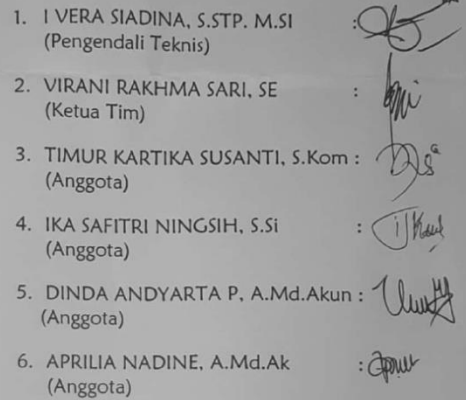 1. I VERA SIADINA, S.STP. M.SI :
(Pengendali Teknis)
2. VIRANI RAKHMA SARI, SE :
(Ketua Tim)
3. TIMUR KARTIKA SUSANTI, S.Kom :
(Anggota)
4. IKA SAFITRI NINGSIH, S.Si :
(Anggota)
5. DINDA ANDYARTA P, A.Md.Akun :
(Anggota)
6. APRILIA NADINE, A.Md.Ak :
(Anggota)